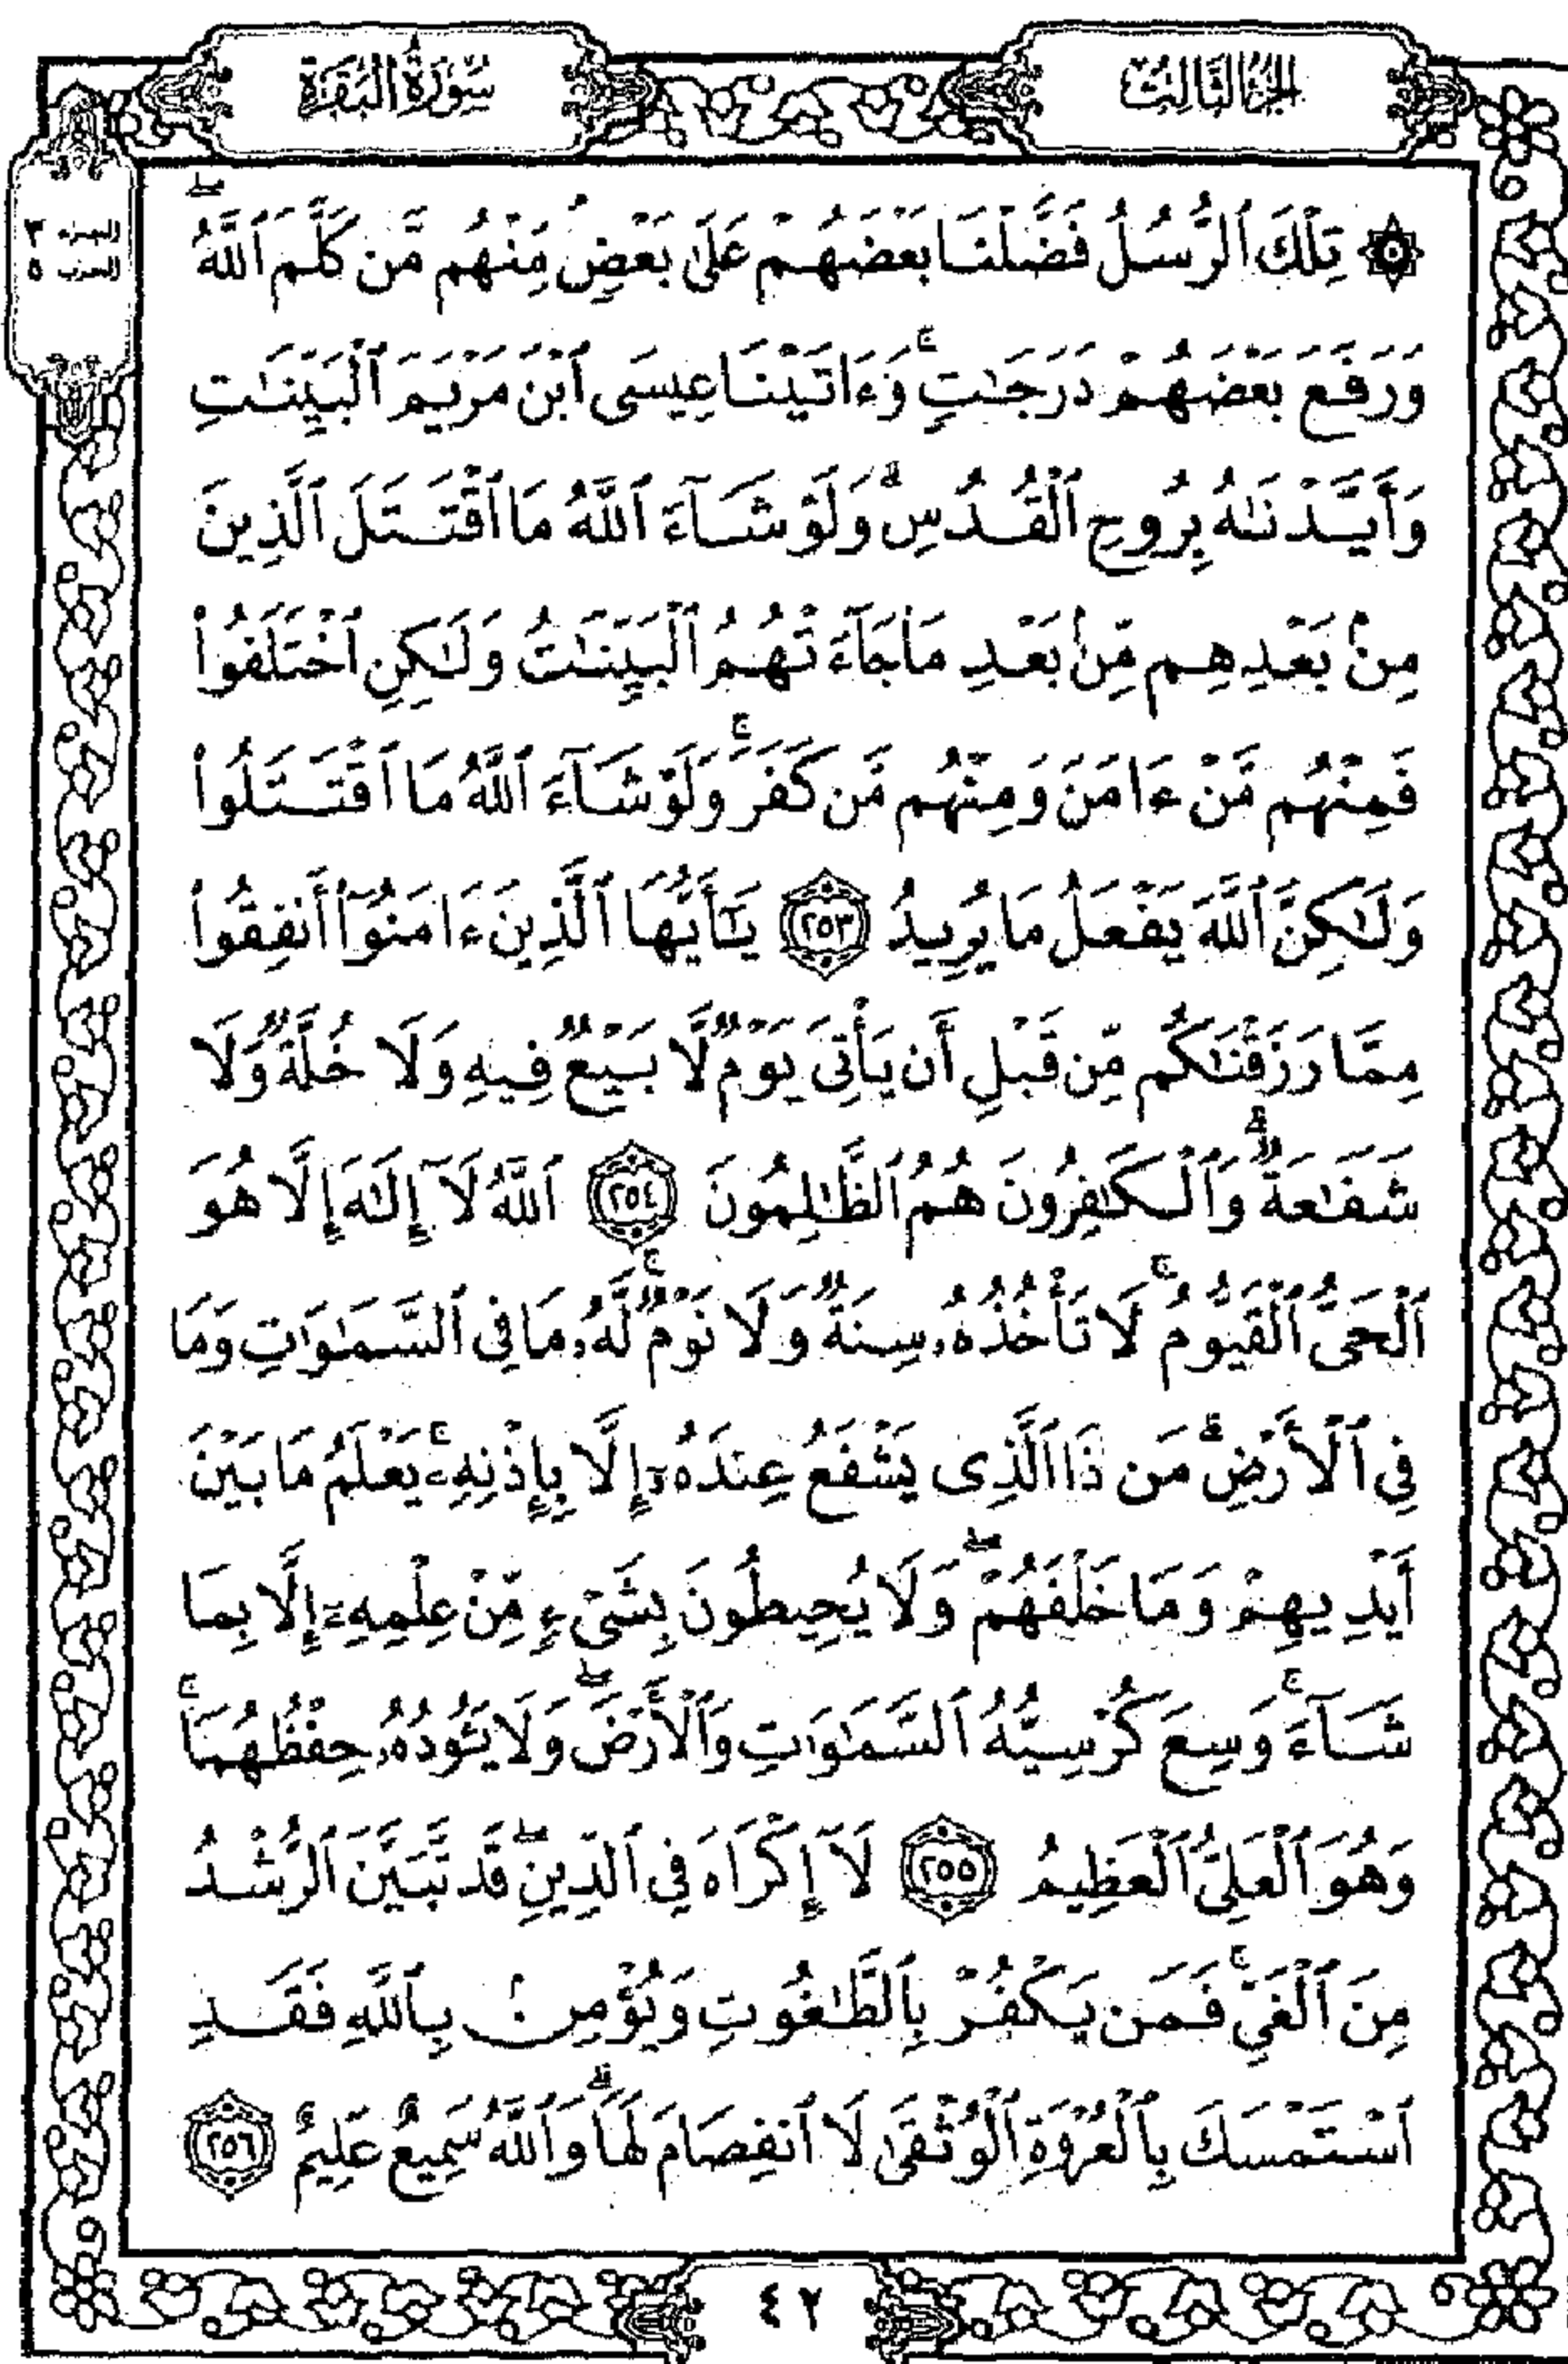 الجزء الثالث
سورة البقرة
الجزء ٣
الحزب ٥
۞ تِلْكَ ٱلرُّسُلُ فَضَّلْنَا بَعْضَهُمْ عَلَىٰ بَعْضٍۘ مِّنْهُم مَّن كَلَّمَ ٱللَّهُۖ
وَرَفَعَ بَعْضَهُمْ دَرَجَٰتٍۚ وَءَاتَيْنَا عِيسَى ٱبْنَ مَرْيَمَ ٱلْبَيِّنَٰتِ
وَأَيَّدْنَٰهُ بِرُوحِ ٱلْقُدُسِۗ وَلَوْ شَآءَ ٱللَّهُ مَا ٱقْتَتَلَ ٱلَّذِينَ
مِنۢ بَعْدِهِم مِّنۢ بَعْدِ مَا جَآءَتْهُمُ ٱلْبَيِّنَٰتُ وَلَٰكِنِ ٱخْتَلَفُوا۟
فَمِنْهُم مَّنْ ءَامَنَ وَمِنْهُم مَّن كَفَرَۚ وَلَوْ شَآءَ ٱللَّهُ مَا ٱقْتَتَلُوا۟
وَلَٰكِنَّ ٱللَّهَ يَفْعَلُ مَا يُرِيدُ ٢٥٣ يَٰٓأَيُّهَا ٱلَّذِينَ ءَامَنُوٓا۟ أَنفِقُوا۟
مِمَّا رَزَقْنَٰكُم مِّن قَبْلِ أَن يَأْتِىَ يَوْمٌ لَّا بَيْعٌ فِيهِ وَلَا خُلَّةٌ وَلَا
شَفَٰعَةٌۗ وَٱلْكَٰفِرُونَ هُمُ ٱلظَّٰلِمُونَ ٢٥٤ ٱللَّهُ لَآ إِلَٰهَ إِلَّا هُوَ
ٱلْحَىُّ ٱلْقَيُّومُۚ لَا تَأْخُذُهُۥ سِنَةٌ وَلَا نَوْمٌۚ لَّهُۥ مَا فِى ٱلسَّمَٰوَٰتِ وَمَا
فِى ٱلْأَرْضِۗ مَن ذَا ٱلَّذِى يَشْفَعُ عِندَهُۥٓ إِلَّا بِإِذْنِهِۦۚ يَعْلَمُ مَا بَيْنَ
أَيْدِيهِمْ وَمَا خَلْفَهُمْۖ وَلَا يُحِيطُونَ بِشَىْءٍ مِّنْ عِلْمِهِۦٓ إِلَّا بِمَا
شَآءَۚ وَسِعَ كُرْسِيُّهُ ٱلسَّمَٰوَٰتِ وَٱلْأَرْضَۖ وَلَا يَـُٔودُهُۥ حِفْظُهُمَاۚ
وَهُوَ ٱلْعَلِىُّ ٱلْعَظِيمُ ٢٥٥ لَآ إِكْرَاهَ فِى ٱلدِّينِۖ قَد تَّبَيَّنَ ٱلرُّشْدُ
مِنَ ٱلْغَىِّۚ فَمَن يَكْفُرْ بِٱلطَّٰغُوتِ وَيُؤْمِنۢ بِٱللَّهِ فَقَدِ
ٱسْتَمْسَكَ بِٱلْعُرْوَةِ ٱلْوُثْقَىٰ لَا ٱنفِصَامَ لَهَاۗ وَٱللَّهُ سَمِيعٌ عَلِيمٌ ٢٥٦
٤٢